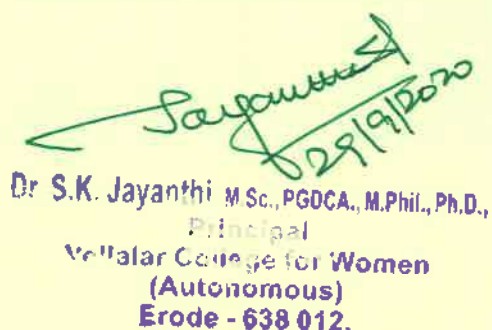 Jayanthi
29/9/2020
Dr S.K. Jayanthi M.Sc., PGDCA., M.Phil., Ph.D.,
Principal
Vellalar College for Women
(Autonomous)
Erode - 638 012.